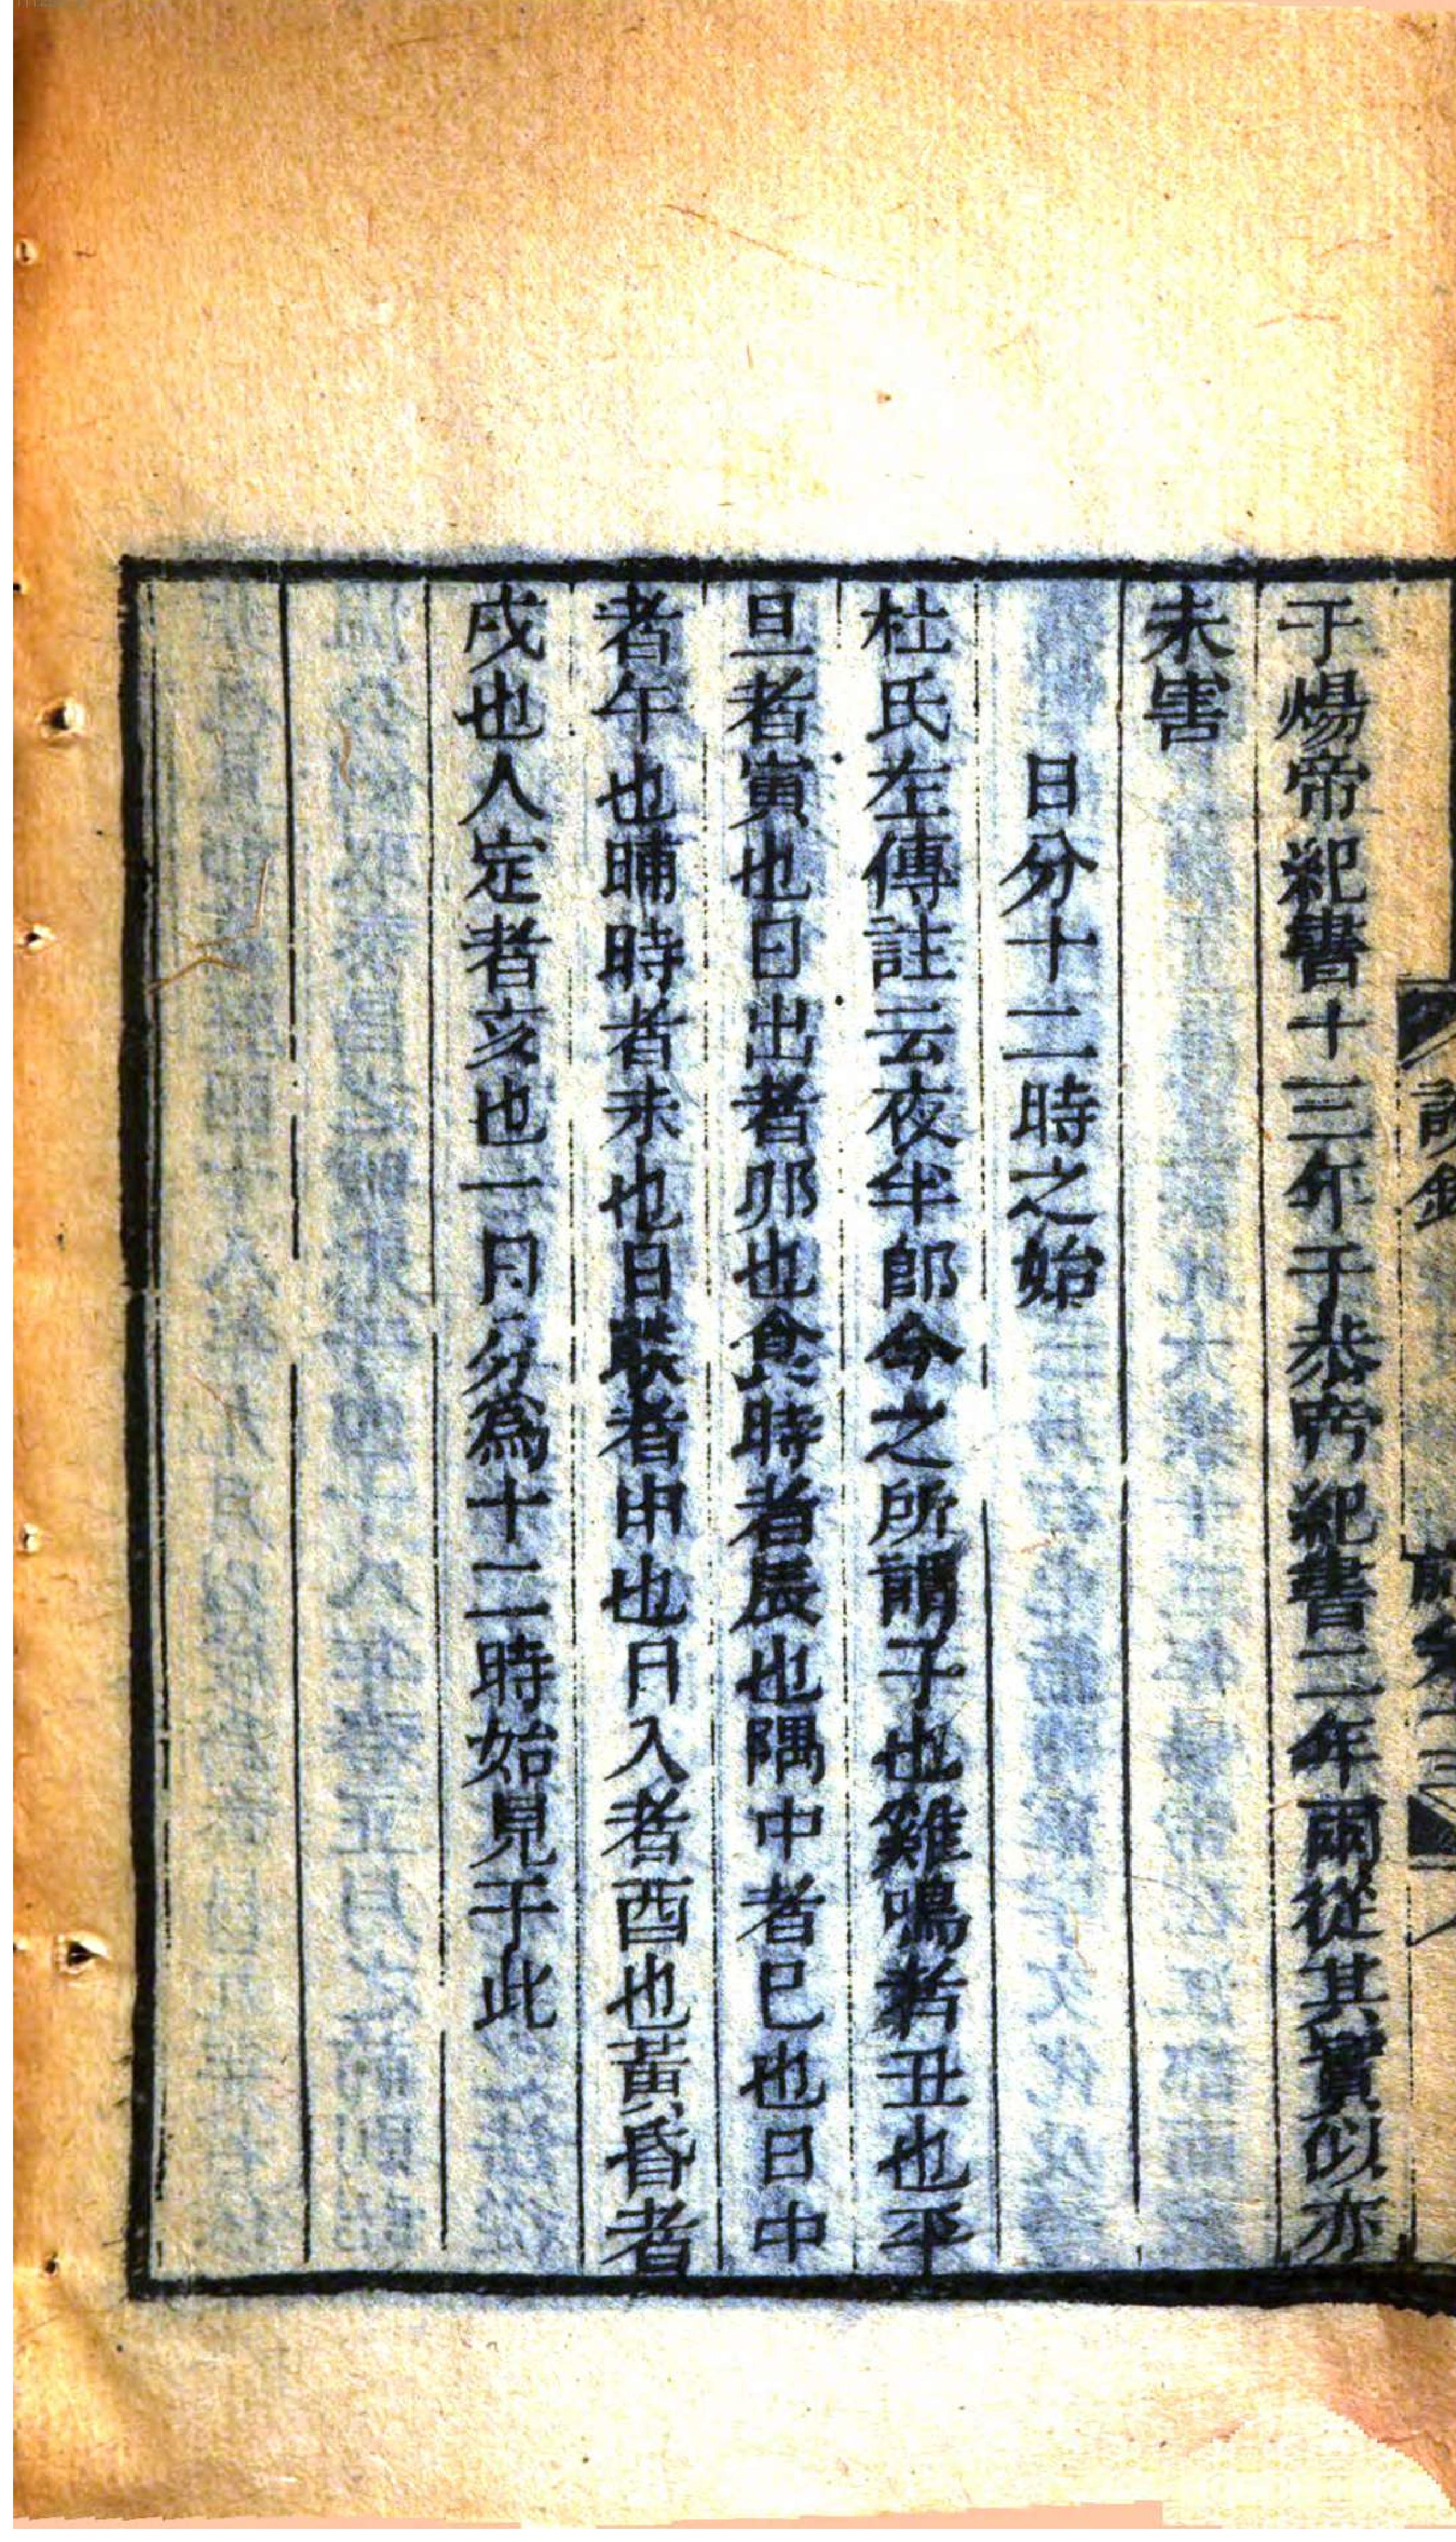 于煬帝紀書十三年于恭帝紀書二年兩從其實似亦
未害
日分十二時之始
杜氏左傳註云夜半郎今之所謂子也雞鳴者丑也平
旦者寅也日出者卯也食時者辰也隅中者巳也日中
者午也晡時者未也日昳者申也日入者酉也黃昏者
戌也人定者亥也一日分爲十二時始見于此